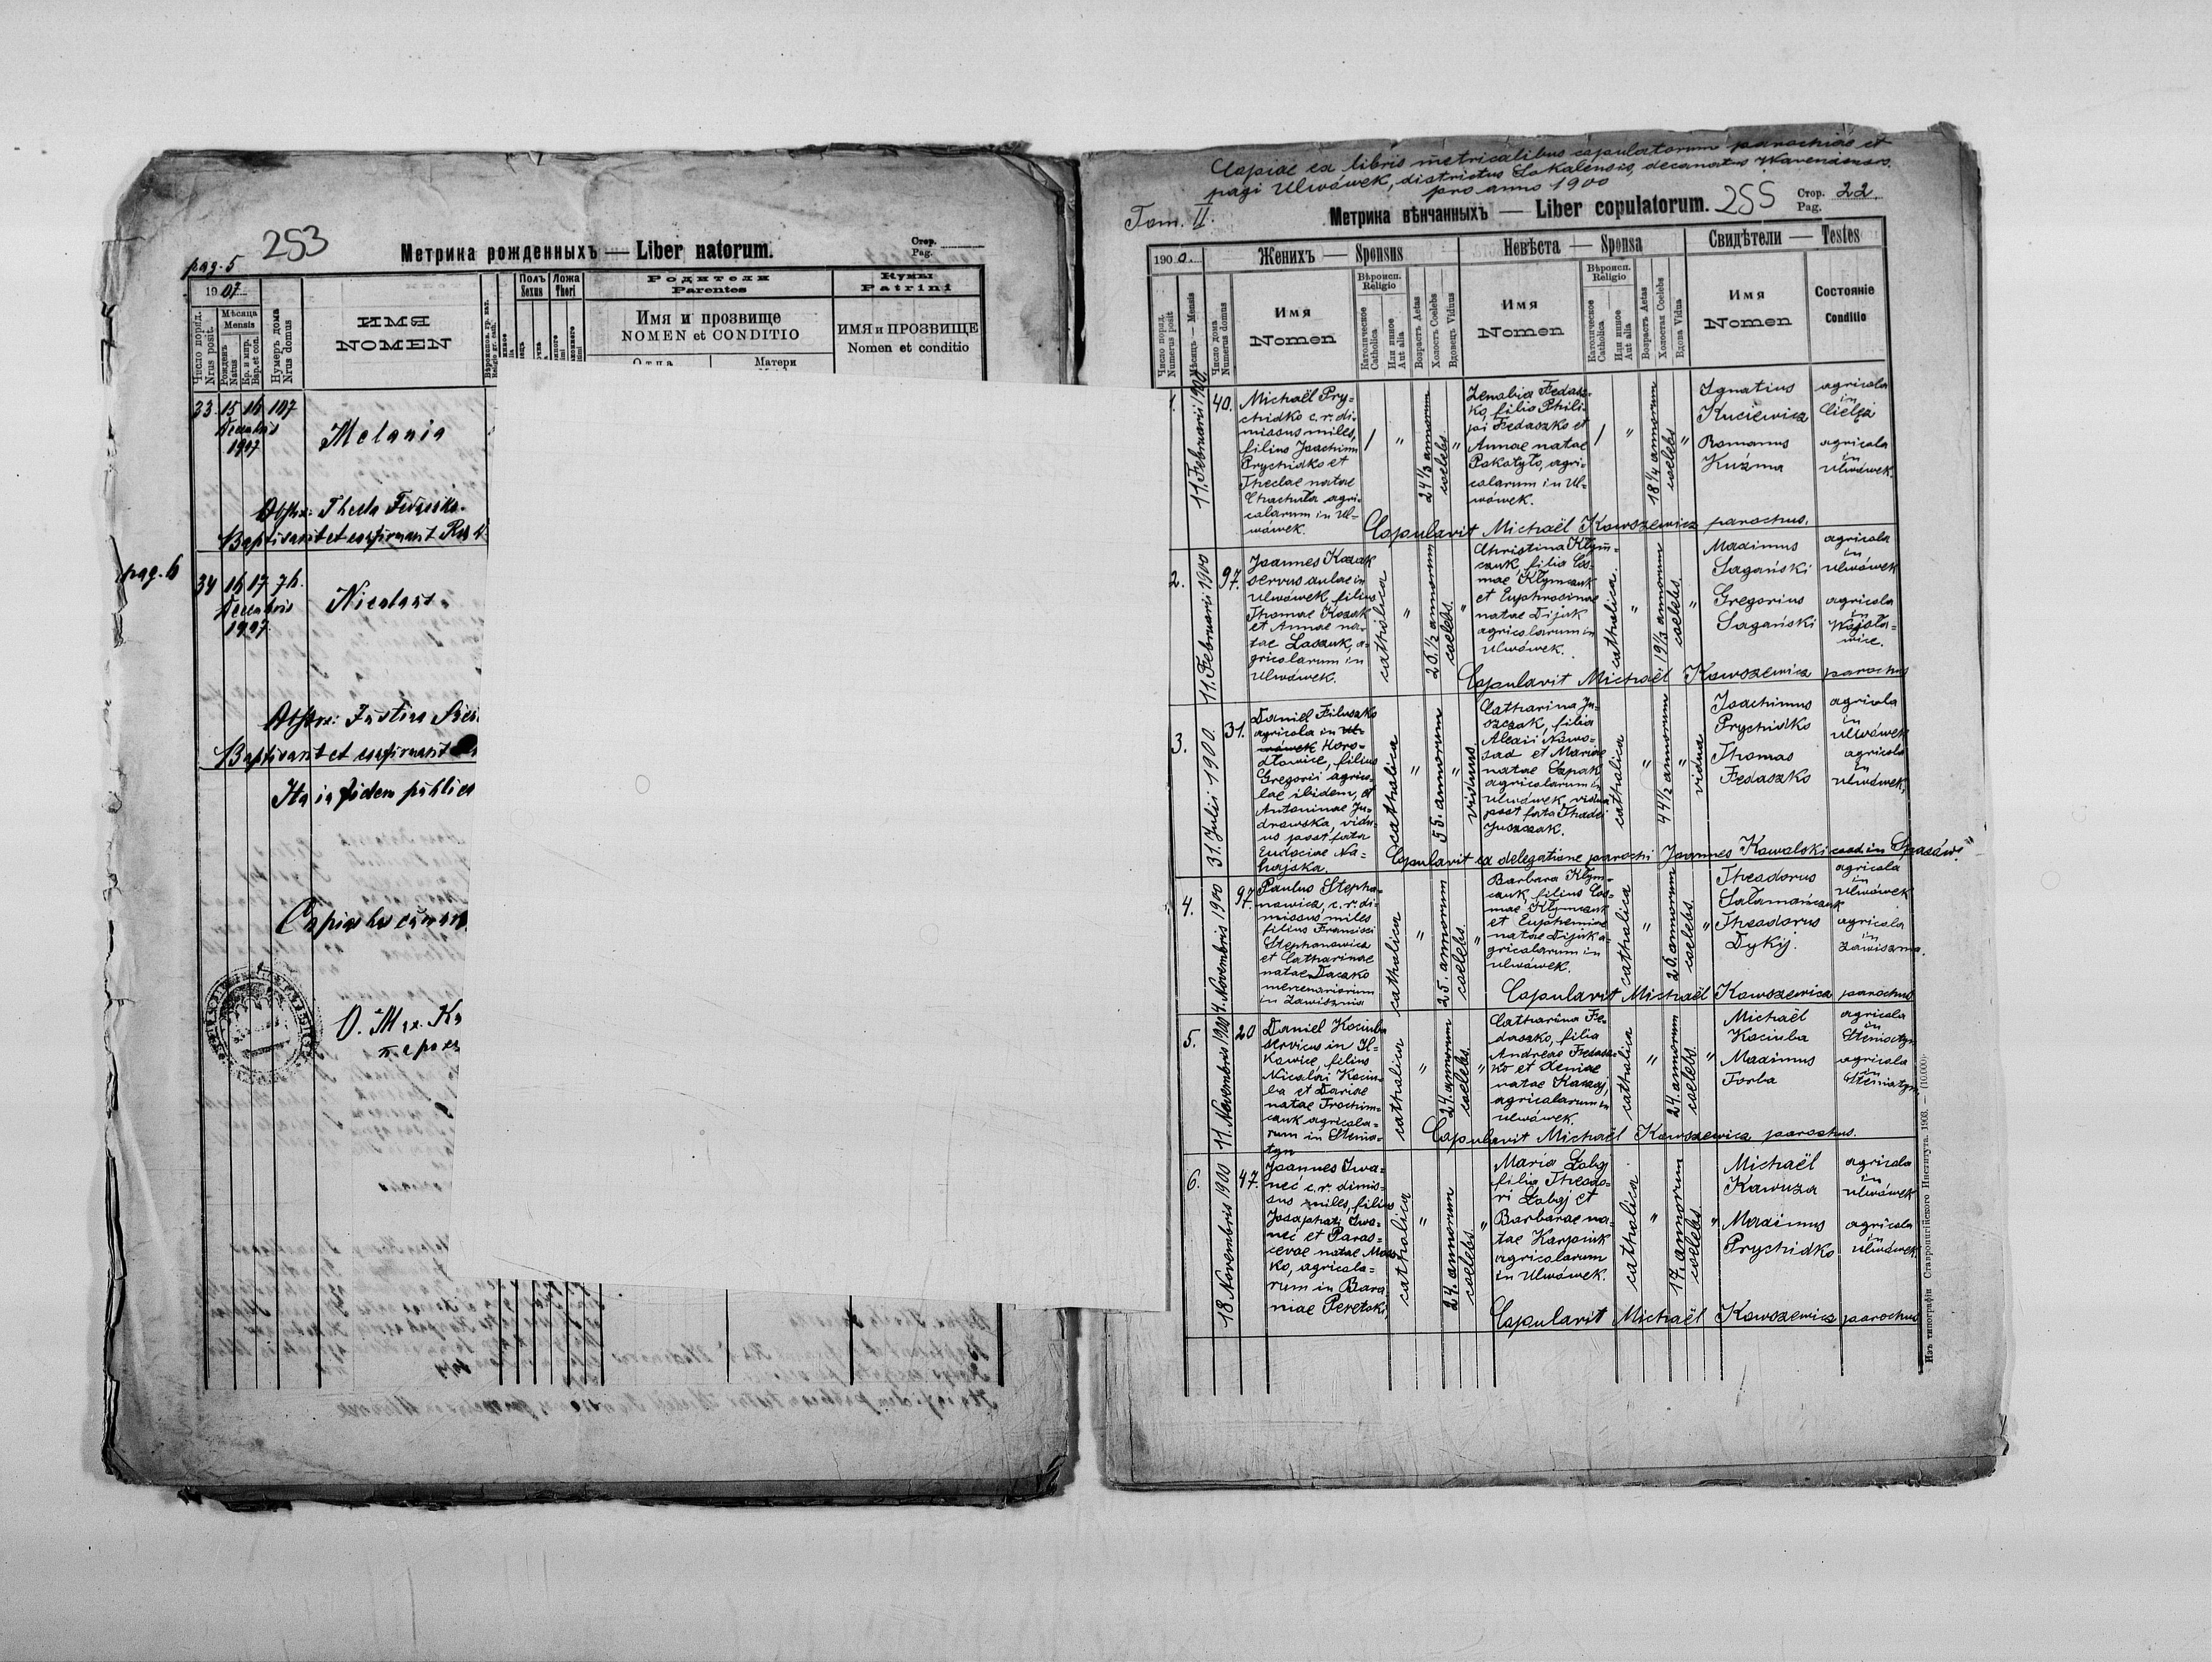 pag. 5
253
Метрика рожденныхъ — Liber natorum.
Стор.
Pag.
1907
Число поряд.
Nrus posit.
Мѣсяца
Mensis
Рожденъ
Natus
Кр. и мѵр.
Bap. et con.
Нумеръ дома
Nrus domus
ИМЯ
NOMEN
Полъ
Sexus
Ложа
Thori
Родители
Parentes
Имя и прозвище
NOMEN et CONDITIO
Отца
Матери
Кумы
Patrini
ИМЯ и ПРОЗВИЩЕ
Nomen et conditio
33 15 16 107
Decembris
1907
Melania
Obstx: Thecla Fedaszko.
Baptisavit et confirmavit
pag. 6
34 16 17 76.
Decembris
1907
Nicolaus
Obstx: Justina
Baptisavit et confirmavit
Ita in fidem public
Copiae ex libris metricalibus copulatorum parochiae et
pagi Ulwówek, districtus Sokalensis, decanatus
pro anno 1900
Tom. II.
Метрика вѣнчанныхъ — Liber copulatorum.
255
Стор.
Pag. 22.
1900.
Женихъ — Sponsus
Невѣста — Sponsa
Свидѣтели — Testes
Число поряд.
Numerus posit
Мѣсяцъ — Mensis
Число дома
Numerus domus
Имя
Nomen
Вѣроисп.
Religio
Католическое
Catholica
Или иное
Aut alia
Возрастъ Aetas
Холостъ Coelebs
Вдовецъ Viduus
Имя
Nomen
Вѣроисп.
Religio
Католическое
Catholica
Или иное
Aut alia
Возрастъ Aetas
Холостая Coelebs
Вдова Vidua
Имя
Nomen
Состояніе
Conditio
1.
11. Februarii 1900
40.
Michaël Pry=
chidko c. r. di=
missus miles,
filius Joachimi
Prychidko et
Theclae natae
Chachuła agri=
colarum in Ul=
wówek.
/ "
24 1/3 annorum
coelebs. "
Zenobia Fedasz=
ko, filia Phili=
pi Fedaszko et
Annae natae
Pokotyło, agri=
colarum in Ul=
wówek.
/ "
18 1/4 annorum
coelebs "
Ignatius
Kuciewicz
Romanus
Kuźma
agricola
in
Cieląż
agricola
in
Ulwówek.
Copulavit Michaël Kowszewicz parochus.
2.
11. Februarii 1900
97.
Joannes Kozak
servus aulae in
Ulwówek, filius
Thomae Kozak
et Annae na=
tae Laszuk, a=
gricolarum in
Ulwówek.
catholica "
26 1/2 annorum
coelebs. "
Christina Kłym=
czuk, filia Cos=
mae Kłymczuk
et Euphrosinae
natae Dijuk
agricolarum in
Ulwówek.
catholica. "
19 1/3 annorum
coelebs. "
Maximus
Sagański
Gregorius
Sagański
agricola
in
Ulwówek
agricola
in
Wojsła=
wice.
Copulavit Michaël Kowszewicz parochus
3.
31. Julii 1900.
31.
Daniel Filuszko
agricola in Ul=
wówek Horo=
dłowice, filius
Gregorii agrico=
lae ibidem, et
Antoninae Ju=
drowska, vidu=
us post fata
Eudociae Na=
hajska.
catholica "
55. annorum "
viduus
Catharina Ju=
szczak, filia
Alexii Nowo=
sad et Mariae
natae Szpak
agricolarum in
Ulwówek, vidua
post fata Thadei
Juszczak.
catholica "
44 1/2 annorum "
vidua
Joachimus
Prychidko
Thomas
Fedaszko
agricola
in
Ulwówek
agricola
in
Ulwówek.
Copulavit ex delegatione parochi Joannes Kowalski coad. in Spasów.
4.
4. Novembris 1900
97.
Paulus Stepha=
nowicz, c. r. di=
missus miles
filius Francisci
Stephanowicz
et Catharinae
natae Daczko
mercenariorum
in Zawisznia
catholica "
25. annorum
coelebs. "
Barbara Kłym=
czuk, filius Cos=
mae Kłymczuk
et Euphemiae
natae Dijuk a=
gricolarum in
Ulwówek.
catholica "
26. annorum
coelebs. "
Theodorus
Sałamończuk
Theodorus
Dykij.
agricola
in
Ulwówek
agricola
in
Zawisznia.
Copulavit Michaël Kowszewicz parochus
5.
11. Novembris 1900
20
Daniel Kociuba
servicus in Il=
kowice, filius
Nicolai Kociu=
ba et Dariae
natae Trochim=
czuk agricola=
rum in Stenia=
tyn
catholica "
24. annorum
coelebs. "
Catharina Fe=
daszko, filia
Andreae Fedasz=
ko et Xeniae
natae Kaszaj,
agricolarum in
Ulwówek.
catholica "
24. annorum
coelebs. "
Michaël
Kociuba
Maximus
Torba
agricola
in
Steniatyn
agricola
in
Steniatyn
Copulavit Michaël Kowszewicz parochus.
6.
18 Novembris 1900
47.
Joannes Iwa=
neć c. r. dimis=
sus miles, filius
Josaphati Iwa=
neć et Paras=
cevae natae
ko, agricola=
rum in Bara
niae Peretoki,
catholica "
24. annorum
coelebs. "
Maria Łobaj
filia Theodo=
ri Łobaj et
Barbarae na=
tae Karpiuk
agricolarum
in Ulwówek.
catholica. "
17. annorum
coelebs. "
Michaël
Kawuza
Maximus
Prychidko
agricola
in
Ulwówek
agricola
in
Ulwówek.
Copulavit Michaël Kowszewicz parochus
Изъ типографіи Ставропигійского Института. 1908. — (10.000).